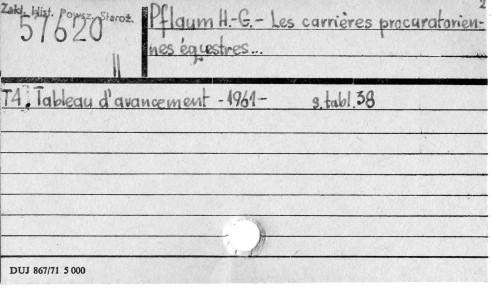 2
Zakł. Hist. Powsz. Staroż.
57620
II
Pflaum H.-G. - Les carrières procuratorien-
nes équestres...
T4: Tableau d'avancement - 1961 - s. tabl. 38
DUJ 867/71 5 000